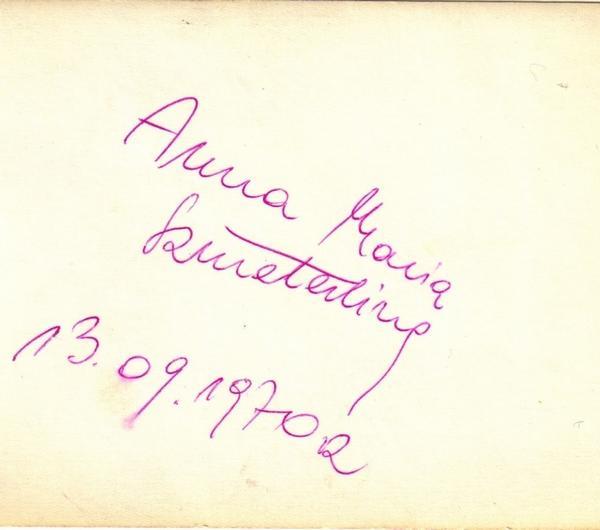 Anna Maria
Szmeterling
13.09.1970 r